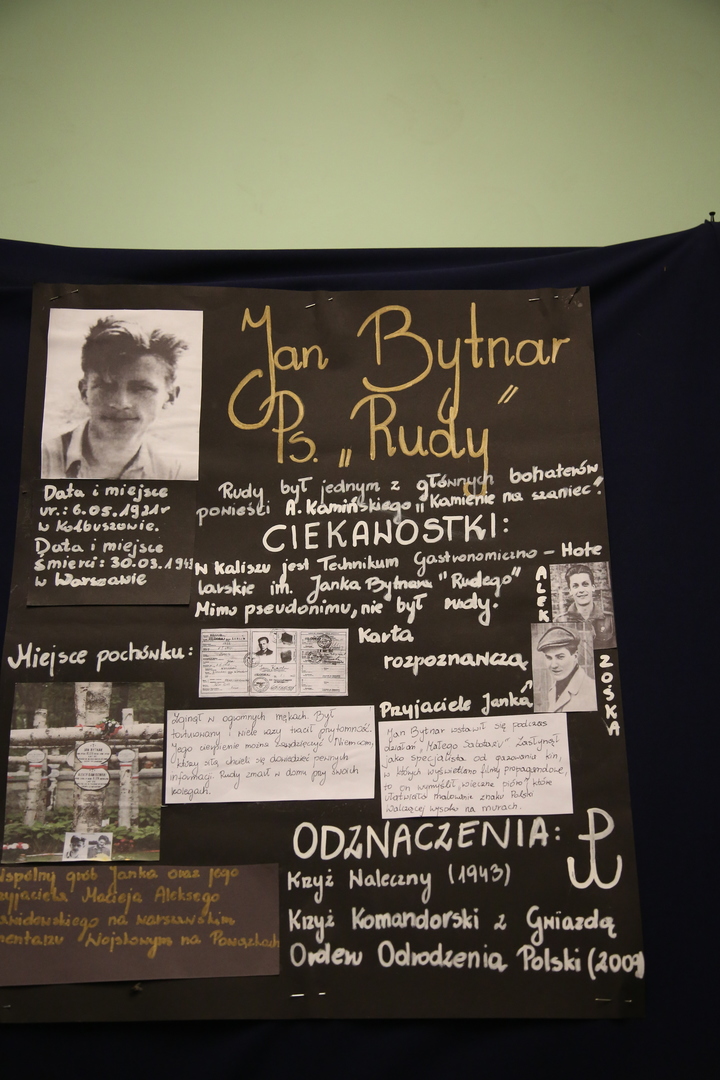 Jan Bytnar
Ps. „Rudy"
Data i miejsce
ur.: 6.05.1921r
w Kolbuszowie.
Data i miejsce
śmierci: 30.03.1943
w Warszawie
Rudy był jednym z głównych bohaterów
powieści A. Kamińskiego „Kamienie na szaniec".
CIEKAWOSTKI:
W Kaliszu jest Technikum Gastronomiczno - Hote
larskie im. Janka Bytnara "Rudego"
Mimo pseudonimu, nie był rudy.
ALEK
Karta
rozpoznawcza
Przyjaciele Janka
ZOŚKA
Miejsce pochówku:
Zginął w ogromnych mękach. Był
torturowany i wiele razy tracił przytomność.
Jego cierpienie można zawdzięczyć Niemcom,
którzy siłą chcieli się dowiedzieć pewnych
informacji. Rudy zmarł w domu przy swoich
kolegach.
Jan Bytnar wsławił się podczas
działań „Małego Sabotażu". Zasłynął
jako specjalista od gazowania kin,
w których wyświetlano filmy propagandowe,
to on wymyślił „wieczne pióro", które
ułatwiało malowanie znaku Polski
Walczącej wysoko na murach.
Wspólny grób Janka oraz jego
przyjaciela Macieja Aleksego
Dawidowskiego na warszawskim
cmentarzu Wojskowym na Powązkach
ODZNACZENIA:
Krzyż Waleczny (1943)
Krzyż Komandorski z Gwiazdą
Orderu Odrodzenia Polski (2009)